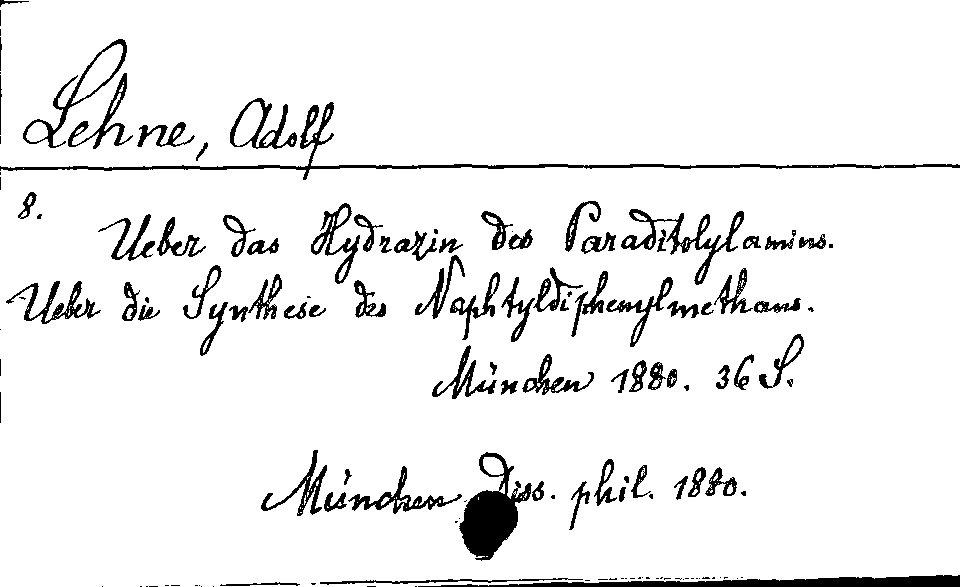 Lehne, Adolf
8.
Ueber das Hydrazin des Paraditolylamins.
Ueber die Synthese des Naphtyldiphenylmethans.
München 1880. 36 S.
München Diss. phil. 1880.